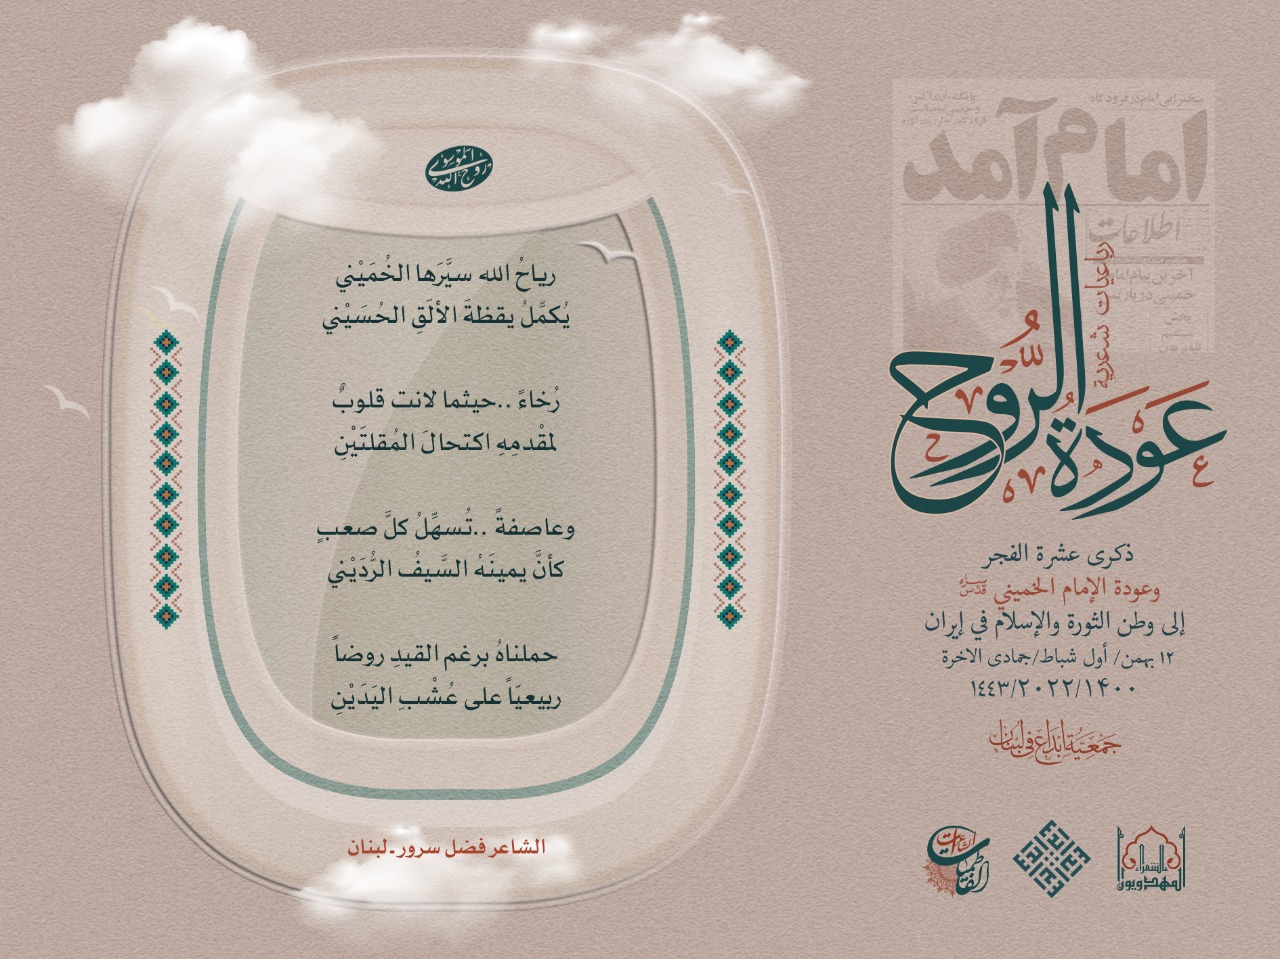 امام آمد
اطلاعات
رباعيات شعرية
عودة الرّوح
ذكرى عشرة الفجر
وعودة الإمام الخميني قدّس سرّه
إلى وطن الثورة والإسلام في إيران
١٢ بهمن/ أول شباط/جمادى الاخرة
١٤٠٠/٢٠٢٢/١٤٤٣
جمعيّة إبداع في لبنان
الشعراء المهدويون
إبداع
الشاعرات الفاطميات
روح الله الموسوي
رياحُ الله سيَّرَها الخُمَيْني
يُكمِّلُ يقظةَ الألَقِ الحُسَيْني
رُخاءً ..حيثما لانت قلوبٌ
لمقْدمِهِ اكتحالَ المُقلتَيْنِ
وعاصفةً ..تُسهِّلُ كلَّ صعبٍ
كأنَّ يمينَهُ السَّيفُ الرُّدَيْني
حملناهُ برغم القيدِ روضاً
ربيعيّاً على عُشْبِ اليَدَيْنِ
الشاعر فضل سرور-لبنان